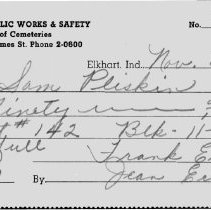 LIC WORKS & SAFETY No.
of Cemeteries
mes St. Phone 2-0600
Elkhart, Ind. Nov.
Sam Pliskin
Ninety
t # 142 Blk-11-
full Frank E
By Jean